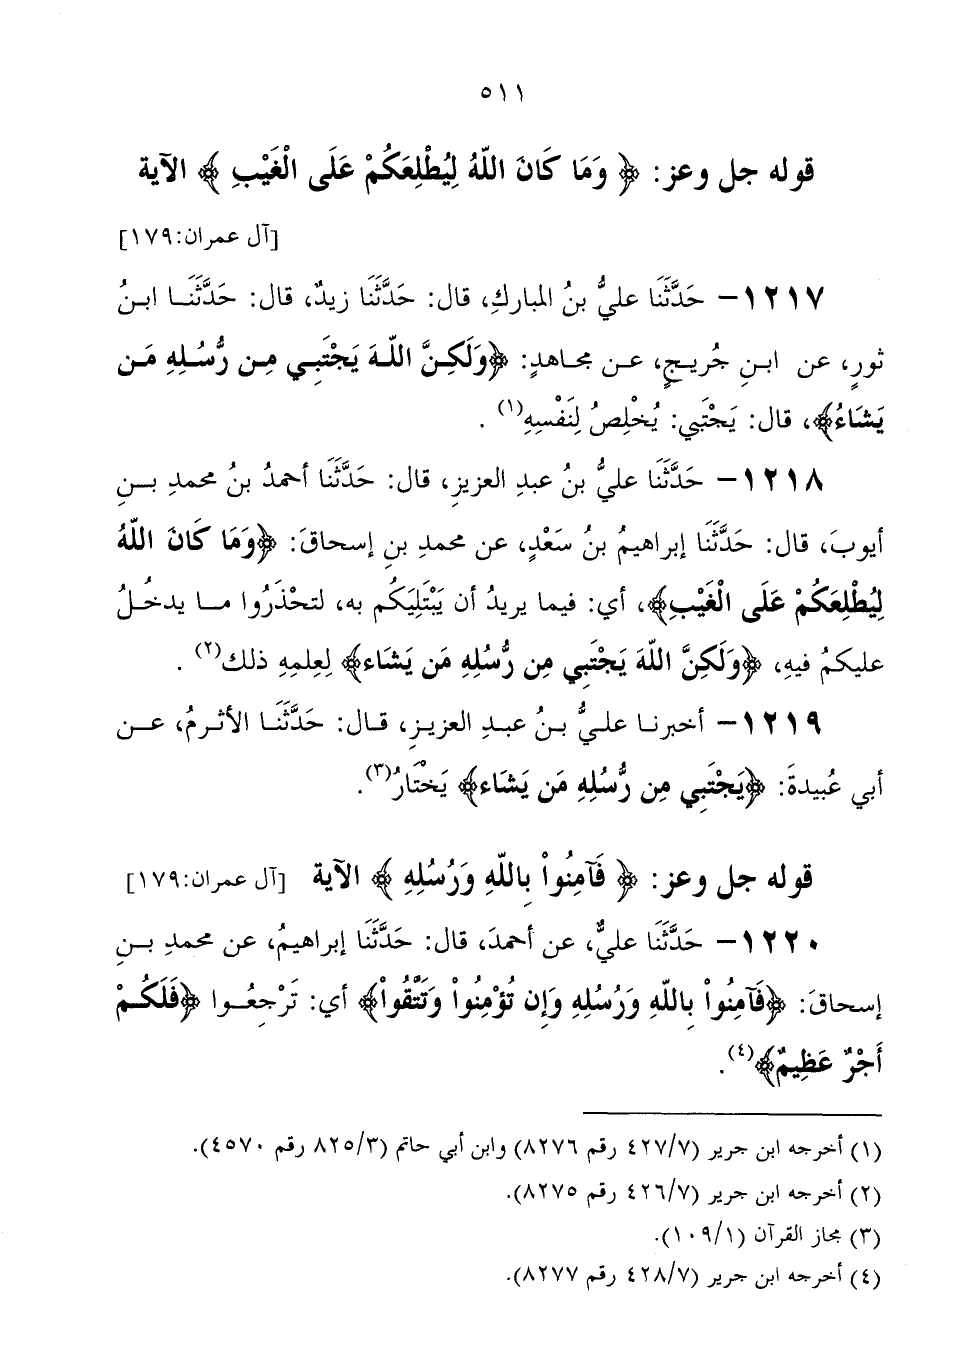 ٥١١
قوله جل وعز: ﴿ وَمَا كَانَ اللّهُ لِيُطْلِعَكُمْ عَلَى الْغَيْبِ ﴾ الآية
[آل عمران:١٧٩]
١٢١٧– حَدَّثَنَا عليُّ بنُ المباركِ، قال: حَدَّثَنَا زيدٌ، قال: حَدَّثَنَا ابنُ
ثورٍ، عن ابنِ جُريجٍ، عن مجاهدٍ: ﴿وَلَكِنَّ اللّهَ يَجْتَبِي مِن رُّسُلِهِ مَن
يَشَاءُ﴾، قال: يَجْتَبِي: يُخْلِصُ لِنَفْسِهِ(١) .
١٢١٨– حَدَّثَنَا عليُّ بنُ عبدِ العزيزِ، قال: حَدَّثَنَا أحمدُ بنُ محمدِ بنِ
أيوبَ، قال: حَدَّثَنَا إبراهيمُ بنُ سَعْدٍ، عن محمدِ بنِ إسحاقَ: ﴿وَمَا كَانَ اللّهُ
لِيُطْلِعَكُمْ عَلَى الْغَيْبِ﴾، أي: فيما يريدُ أن يَبْتَلِيَكُم به، لتحْذَرُوا ما يدخُلُ
عليكمُ فيهِ، ﴿وَلَكِنَّ اللّهَ يَجْتَبِي مِن رُّسُلِهِ مَن يَشَاء﴾ لِعِلمِهِ ذلك(٢) .
١٢١٩– أخبرنا عليُّ بنُ عبدِ العزيزِ، قال: حَدَّثَنَا الأثرمُ، عن
أبي عُبيدةَ: ﴿يَجْتَبِي مِن رُّسُلِهِ مَن يَشَاء﴾ يَخْتَارُ(٣).
قوله جل وعز: ﴿ فَآمِنُواْ بِاللّهِ وَرُسُلِهِ ﴾ الآية [آل عمران:١٧٩]
١٢٢٠– حَدَّثَنَا عليٌّ، عن أحمدَ، قال: حَدَّثَنَا إبراهيمُ، عن محمدِ بنِ
إسحاقَ: ﴿فَآمِنُواْ بِاللّهِ وَرُسُلِهِ وَإِن تُؤْمِنُواْ وَتَتَّقُواْ﴾ أي: تَرْجِعُوا ﴿فَلَكُمْ
أَجْرٌ عَظِيمٌ﴾(٤).
(١) أخرجه ابن جرير (٤٢٧/٧ رقم ٨٢٧٦) وابن أبي حاتم (٨٢٥/٣ رقم ٤٥٧٠).
(٢) أخرجه ابن جرير (٤٢٦/٧ رقم ٨٢٧٥).
(٣) مجاز القرآن (١٠٩/١).
(٤) أخرجه ابن جرير (٤٢٨/٧ رقم ٨٢٧٧).